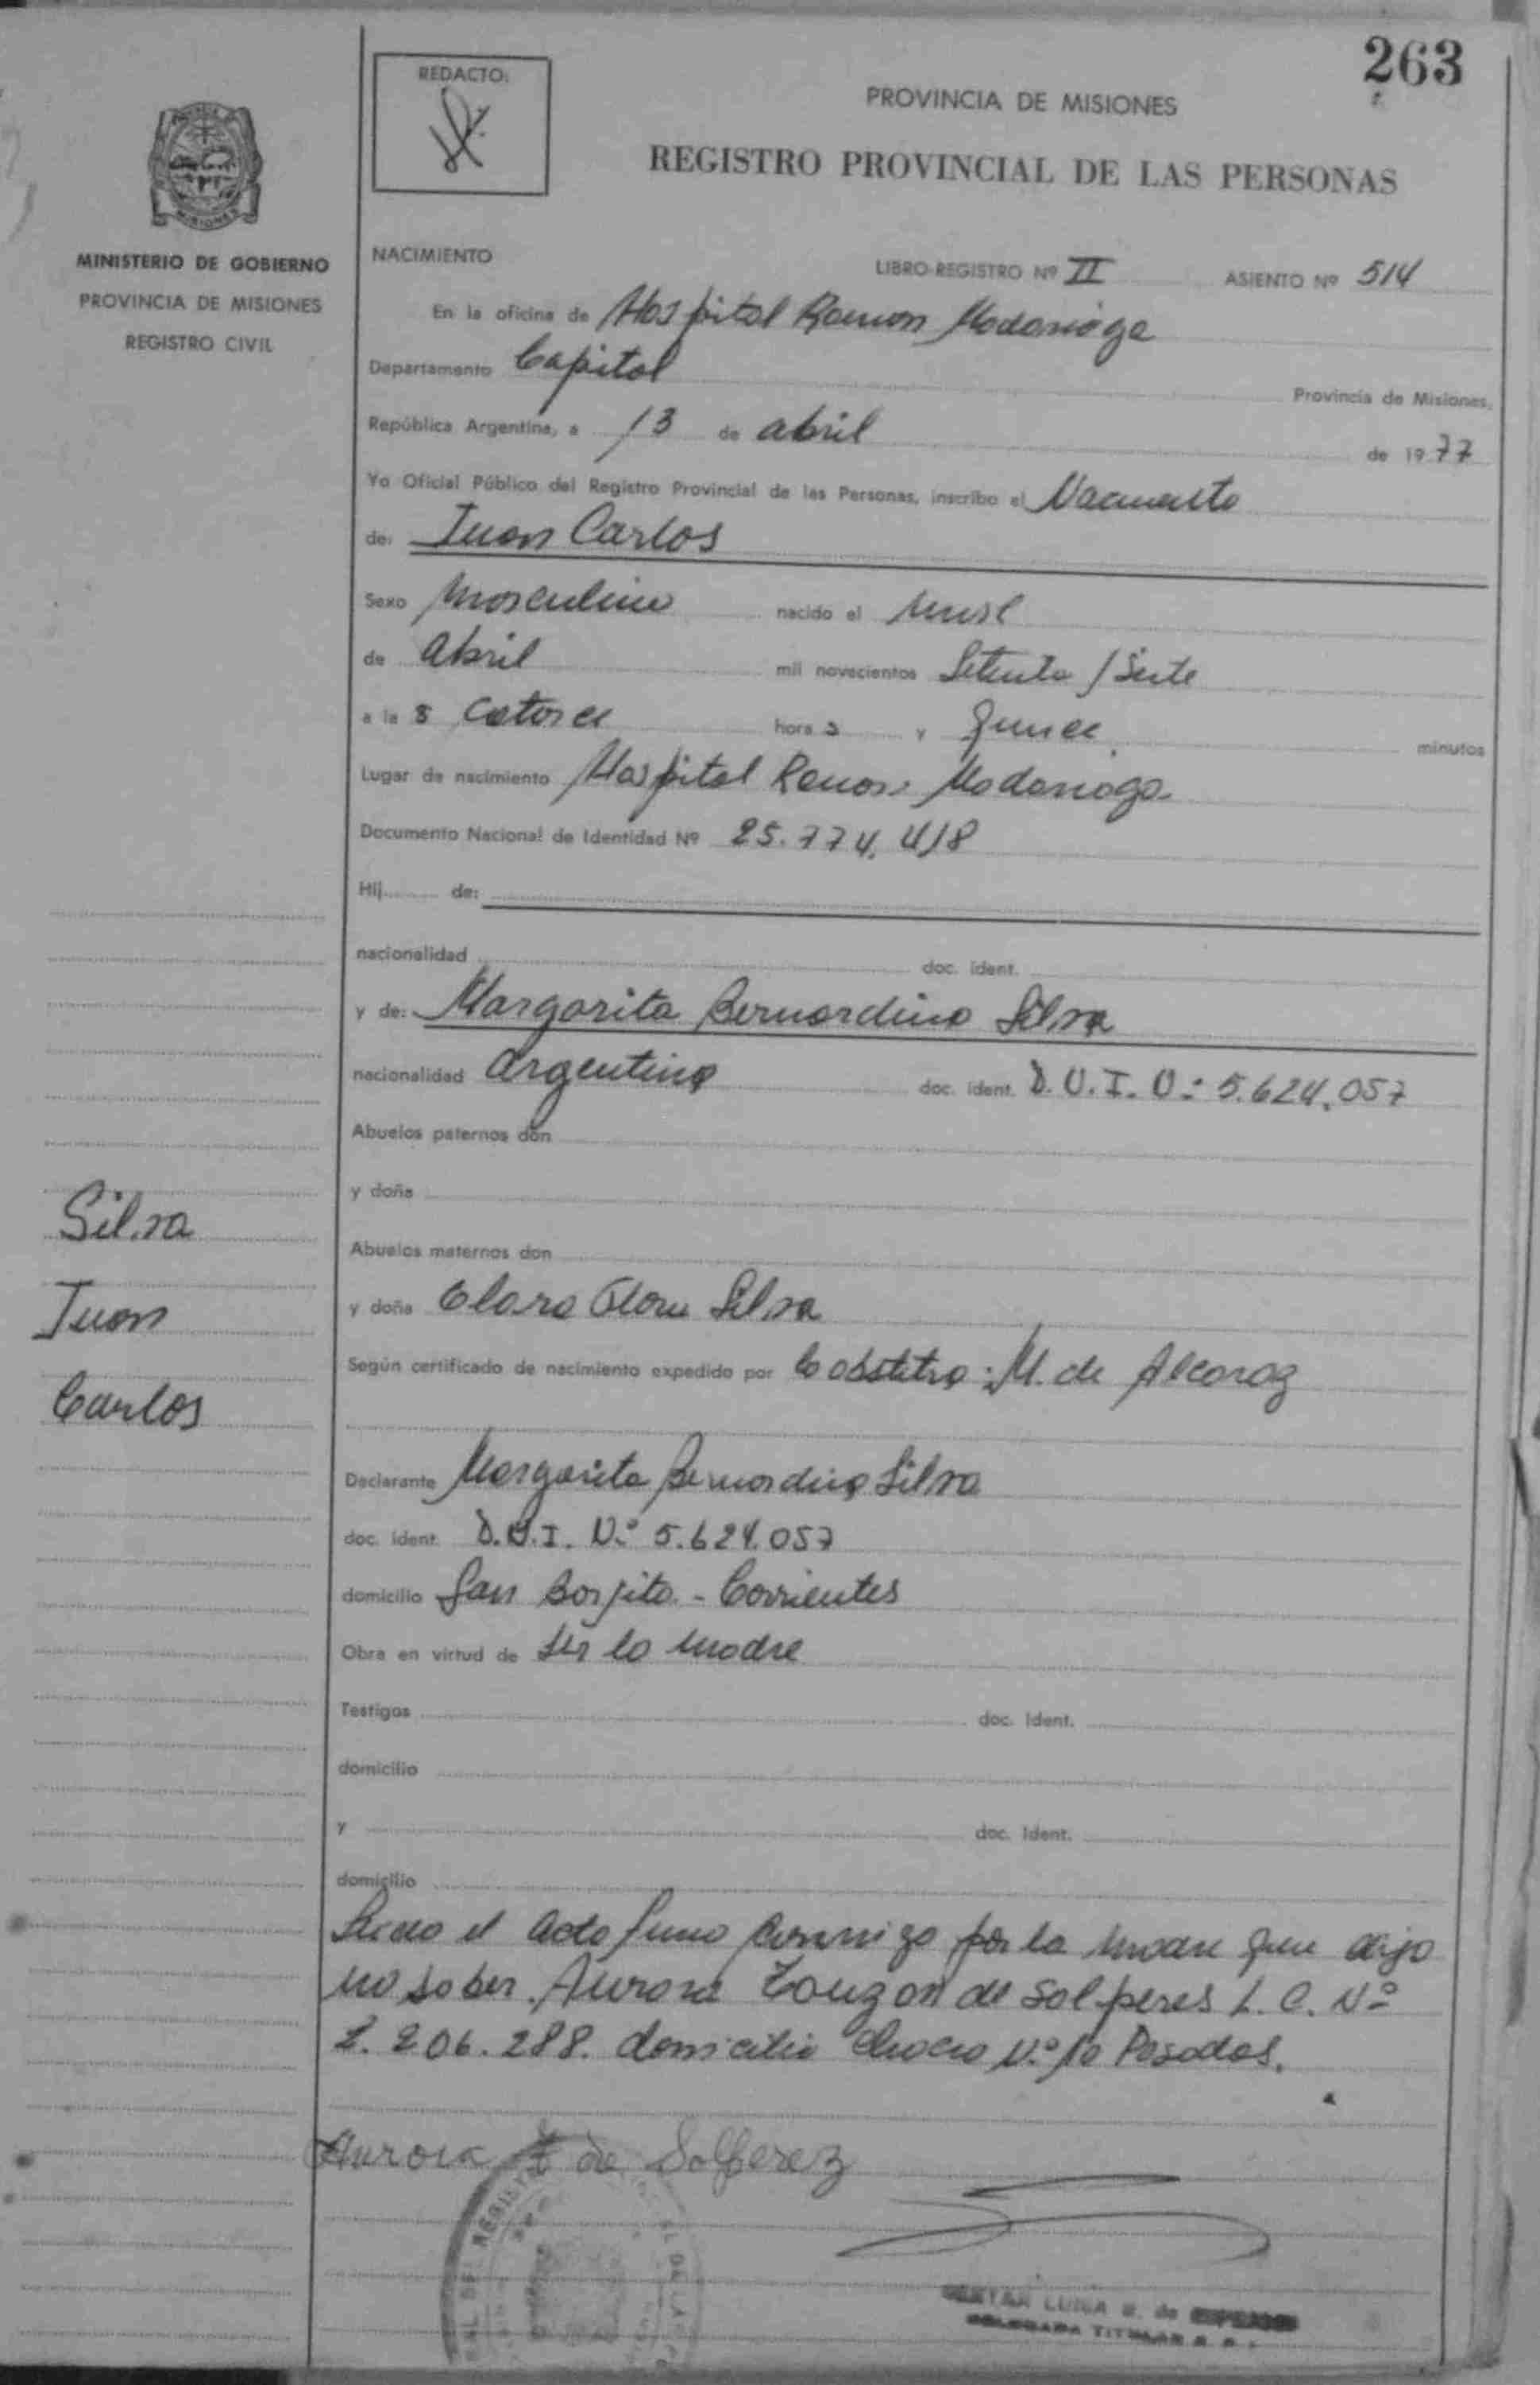 263
REDACTO:
PROVINCIA DE MISIONES
REGISTRO PROVINCIAL DE LAS PERSONAS
MISIONES
MINISTERIO DE GOBIERNO
PROVINCIA DE MISIONES
REGISTRO CIVIL
NACIMIENTO
LIBRO-REGISTRO Nº II ASIENTO Nº 514
En la oficina de Hospital Ramon Madariaga
Departamento Capital Provincia de Misiones,
República Argentina, a 13 de abril de 1977
Yo Oficial Público del Registro Provincial de las Personas, inscribo el Nacimiento
de: Juan Carlos
Sexo Masculino nacido el
de abril mil novecientos Setenta / Siete
a la s catorce hora s y quince minutos
Lugar de nacimiento Hospital Ramon Madariaga
Documento Nacional de Identidad Nº 25.774.418
Hij de:
nacionalidad doc. ident.
y de: Margarita Bernardina Silva
nacionalidad argentina doc. ident. 5.624.057
Abuelos paternos don
y doña
Abuelos maternos don
y doña Clara Silva
Según certificado de nacimiento expedido por la obstetra: M. de Alcaraz
Declarante Margarita Bernardina Silva
doc. ident. D.N.I. Nº 5.624.057
domicilio San Borjita - Corrientes
Obra en virtud de ser la madre
Testigos doc. Ident.
domicilio
y doc. Ident.
domicilio
el acto firma conmigo por la madre que dijo
no saber Aurora de Solperes L.C. Nº
2.206.288. domicilio Chaco Nº 10 Posadas.
Silva
Juan
Carlos
Aurora T de Solferez
LUISA
TITULAR